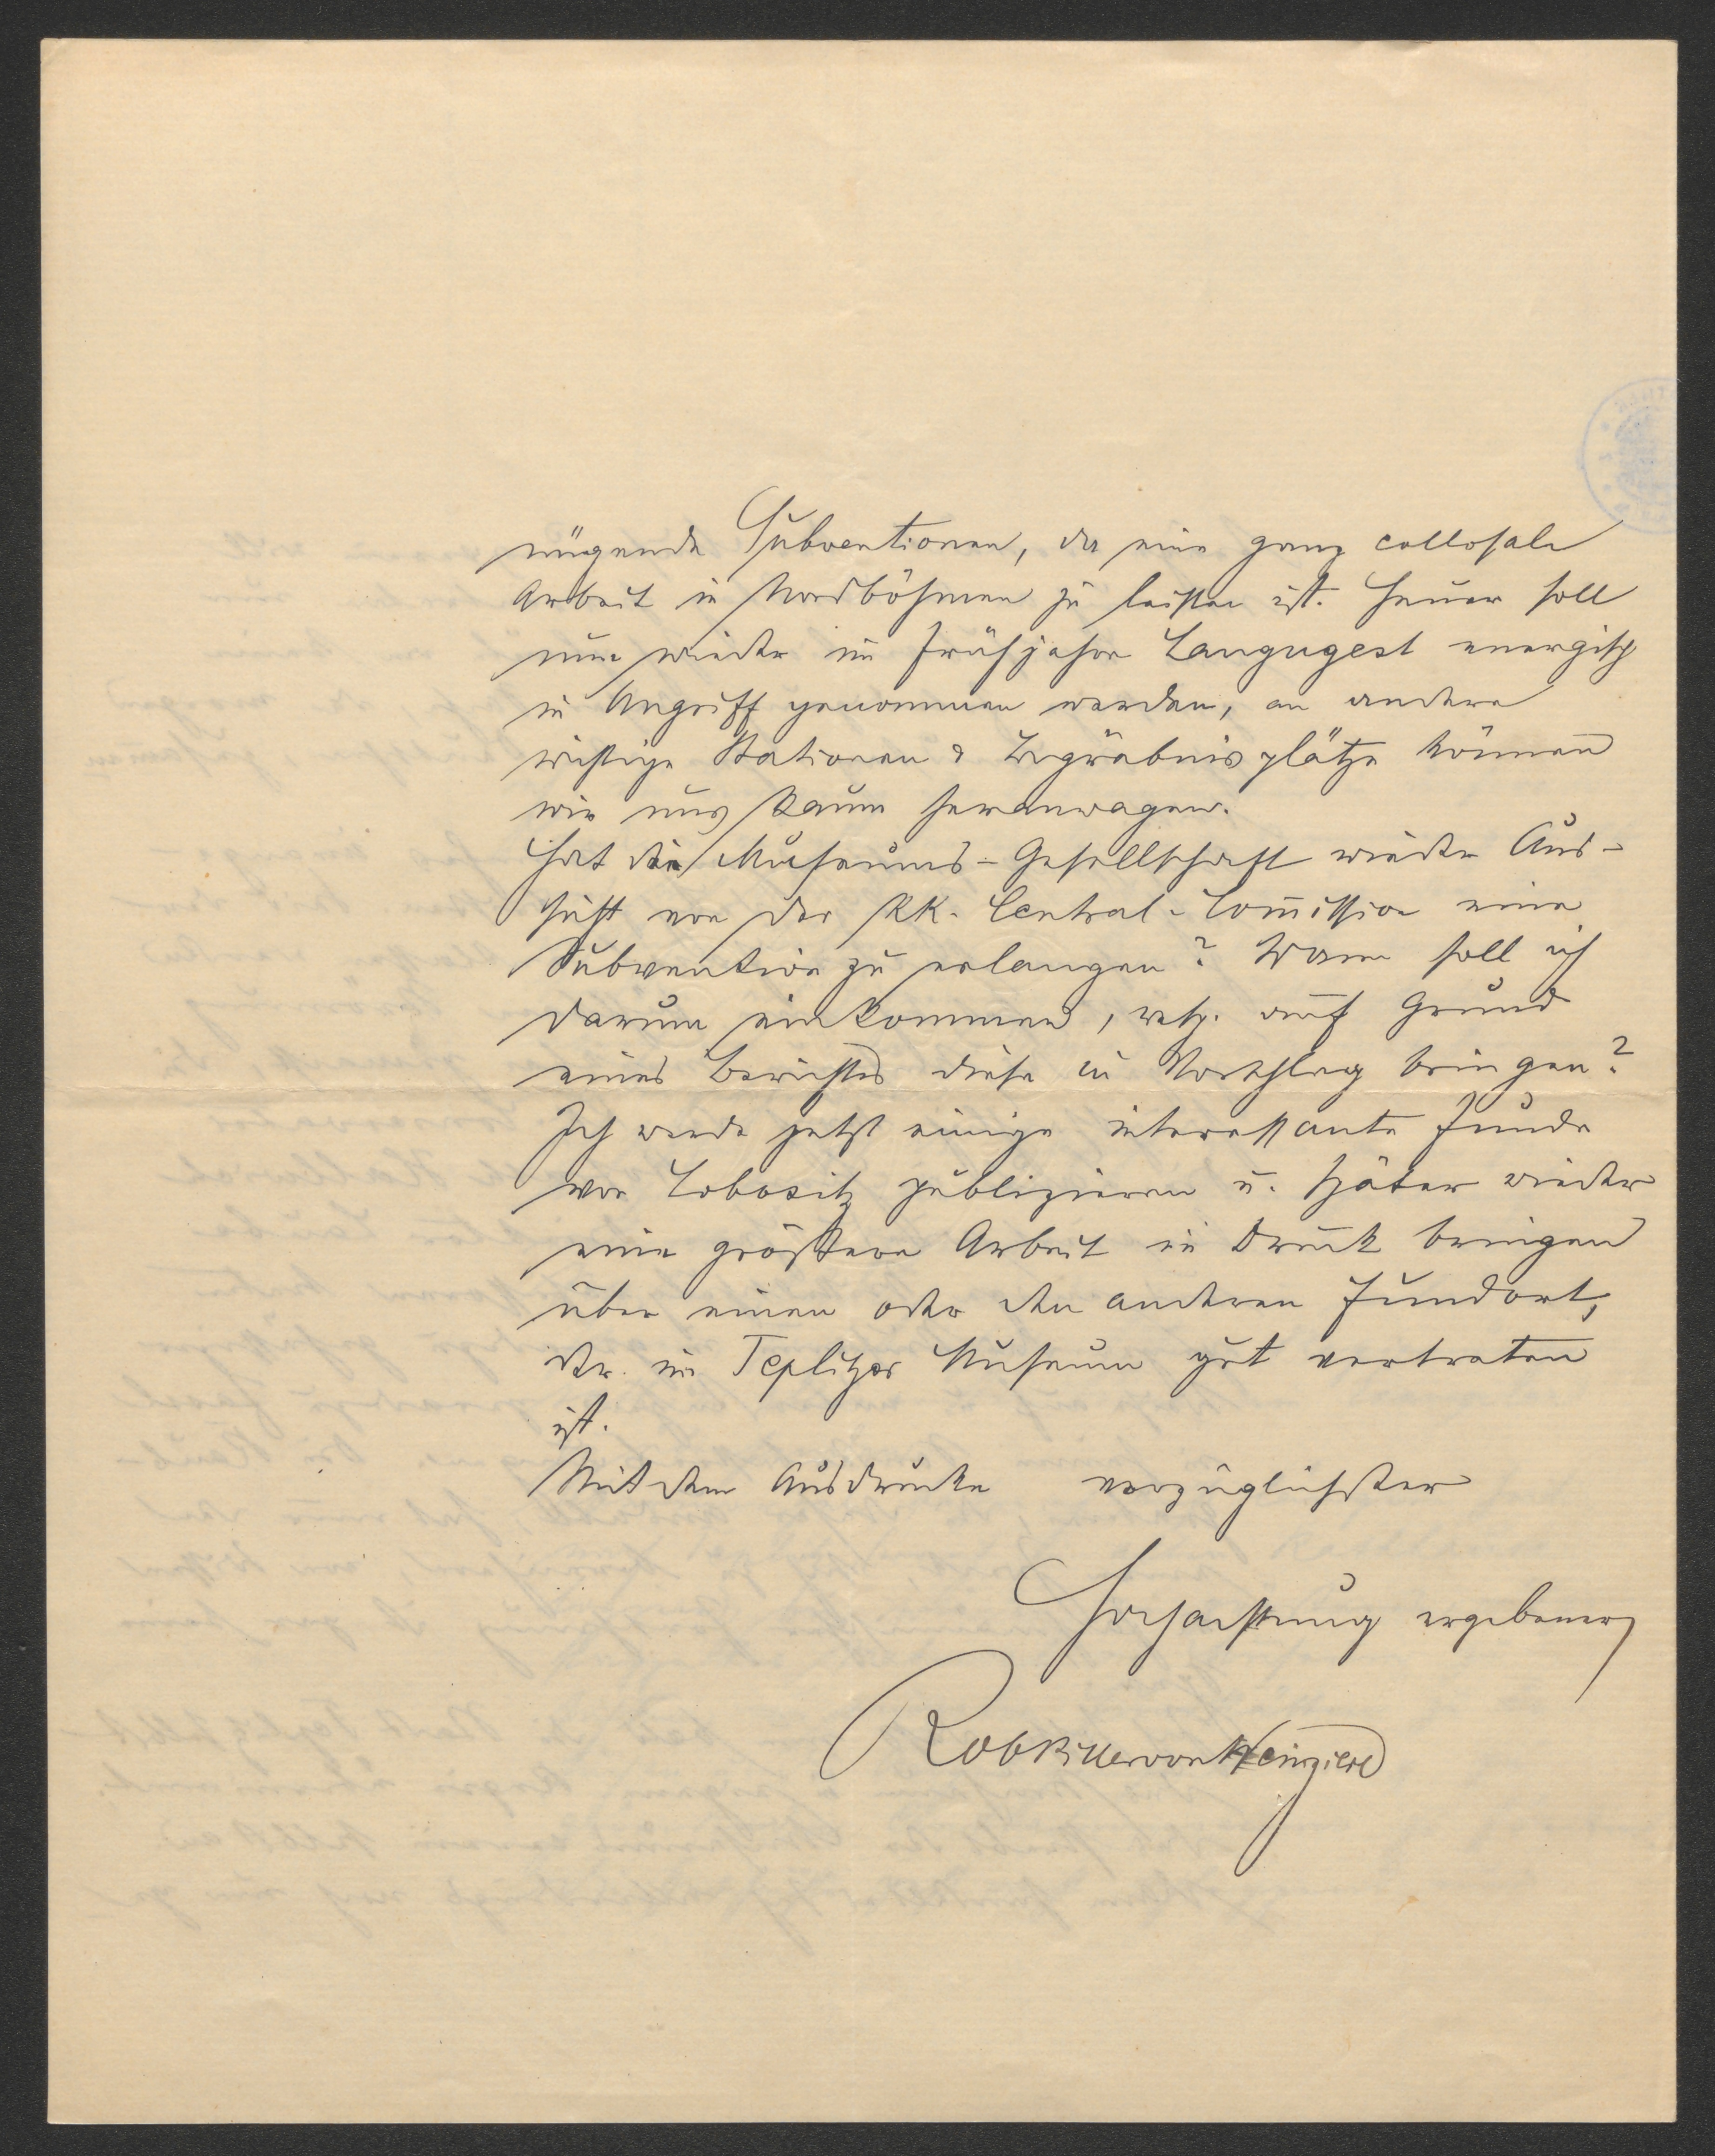 nügende Subventionen, da eine ganz collosale
Arbeit in Nordböhmen zu leisten ist. Heuer soll
nun wieder im Frühjahre Langugest energisch
in Angriff genommen werden, an andere
wichtige Stationen & Begräbnisplätze können
wir uns kaum heranwagen.
Hat die Museums-Gesellschaft wieder Aus-
sicht von der k.k. Central-Com̄ission eine
Subvention zu erlangen? Wann soll ich
darum einkommen, resp. auf Grund
eines Berichtes diese in Vorschlag bringen?
Ich werde jetzt einige interessante Funde
von Lobositz publizieren u. später wieder
eine größere Arbeit in Druck bringen
über einen oder den anderen Fundort,
der im Teplitzer Museum gut vertreten
ist.
Mit dem Ausdrucke vorzüglichster
Hochachtung ergebener
Rob Ritter von Weinzierl